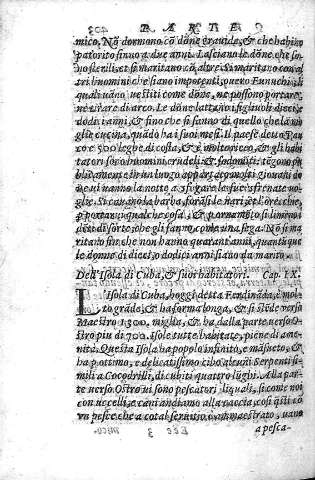 PARTE
mico, Nõ dormono cõ dõne grauide, & che habino
patorito sinno a due anni. Lasciano le dõne che so-
no sterili, et si maritano cõ altre: si maritano con al
tri huomini che siano impotenti, ouero Eunuchi, li
quali vãno vestiti come dõne, ne possono portar,
ne tirare di arco. Le dõne lattano i figliuoli dieci, e
dodici anni, & sino che si fanno di quello che la mo
glie cucina, quãdo ha i suoi mesi. Il paese
ro e 500 leghe di costa, & è molto secco, & gli habi
tatori sono huomini crudeli, & sodomiti: tẽgono pu
blicamente in un luogo appartato i giouani do
ue vi uanno la notte a sfogare le sue sfrenate uo-
glie. Si cauano la barba, forãsi le nari, et l'orecchie,
p portarui qualche cosa, & p ornamẽto si limano i
dẽti di sorte, che gli fanno come una sega. Nõ si ma
ritano sin che non hanno quarant'anni, quantũque
le donne di dieci o dodici anni siano da marito.
Dell'Isola di Cuba, & suoi habitatori. Cap. IX.
L'Isola di Cuba, hoggi detta Ferdinãda, è mol
to grãde, & ha forma longa, & si stẽde verso
Maestro 1300, miglia, & ha dalla parte verso O-
stro piu di 700. isole tutte habitate, piene di ame-
nità. Questa Isola ha popolo infinito, e mãsueto, &
ha p ottimo, e delicatissimo cibo alcuni Serpenti si-
mili a Cocodrilli, di cubiti quattro lũghi. Alla par
te verso Ostro ui sono pescatori, liquali, si come noi
con uccelli, e cani andiamo alla caccia, così essi cõ
vn pesce che a cotal seruitio è ammaestrato, vano
a pesca-